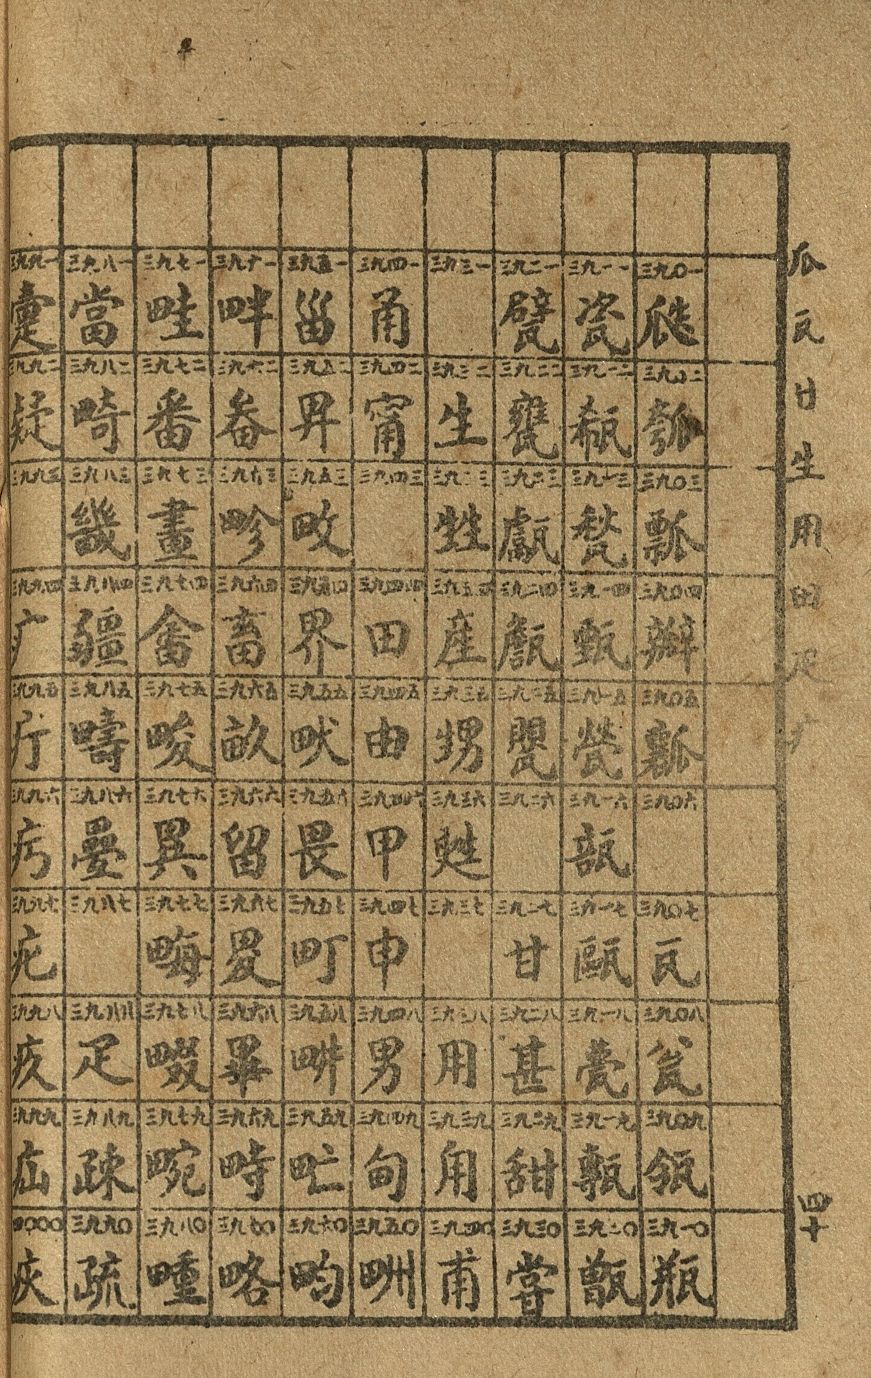 瓜瓦甘生用田疋疒
四十
三九〇一
三九〇二 瓠
三九〇三 瓢
三九〇四 瓣
三九〇五 瓤
三九〇六
三九〇七 瓦
三九〇八 瓮
三九〇九 瓴
三九一〇 瓶
三九一一 瓷
三九一二 瓻
三九一三 甃
三九一四 甄
三九一五
三九一六 瓿
三九一七 甌
三九一八 甍
三九一九 甎
三九二〇 甑
三九二一 甓
三九二二 甕
三九二三 甗
三九二四 甔
三九二五 甖
三九二六
三九二七 甘
三九二八 甚
三九二九 甜
三九三〇 甞
三九三一
三九三二 生
三九三三 甡
三九三四 產
三九三五 甥
三九三六 甦
三九三七
三九三八 用
三九三九 甪
三九四〇 甫
三九四一 甬
三九四二 甯
三九四三
三九四四 田
三九四五 由
三九四六 甲
三九四七 申
三九四八 男
三九四九 甸
三九五〇 甽
三九五一 甾
三九五二 畀
三九五三 畋
三九五四 界
三九五五 畎
三九五六 畏
三九五七 町
三九五八 畊
三九五九 甿
三九六〇 畇
三九六一 畔
三九六二 畚
三九六三 畛
三九六四 畜
三九六五 畝
三九六六 留
三九六七 畟
三九六八 畢
三九六九 畤
三九七〇 略
三九七一 畦
三九七二 番
三九七三 畫
三九七四 畬
三九七五 畯
三九七六 異
三九七七 畮
三九七八 畷
三九七九 畹
三九八〇 畽
三九八一 當
三九八二 畸
三九八三 畿
三九八四 疆
三九八五 疇
三九八六 疊
三九八七
三九八八 疋
三九八九 疎
三九九〇 疏
三九九一 疐
三九九二 疑
三九九三
三九九四 疒
三九九五 疔
三九九六
三九九七 疕
三九九八 疚
三九九九 疝
四〇〇〇 疢